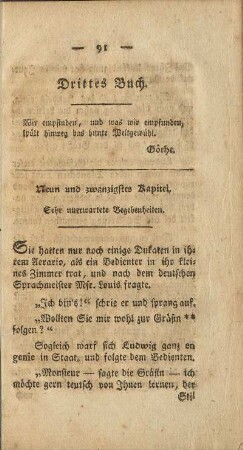 — 91 —
Drittes Buch.
Wir empfinden, und was wir empfunden,
spült hinweg das bunte Weltgewühl.
Göthe.
Neun und zwanzigstes Kapitel.
Sehr unerwartete Begebenheiten.
Sie hatten nur noch einige Dukaten in ih-
rem Aerario, als ein Bedienter in ihr klei-
nes Zimmer trat, und nach dem deutschen
Sprachmeister Msr. Louis fragte.
„Ich bin's!“ schrie er und sprang auf.
„Wollten Sie mir wohl zur Gräfin **
folgen?“
Sogleich warf sich Ludwig ganz en
genie in Staat, und folgte dem Bedienten.
„Monsieur — sagte die Gräfin — ich
möchte gern teutsch von Ihnen lernen, der
Stil